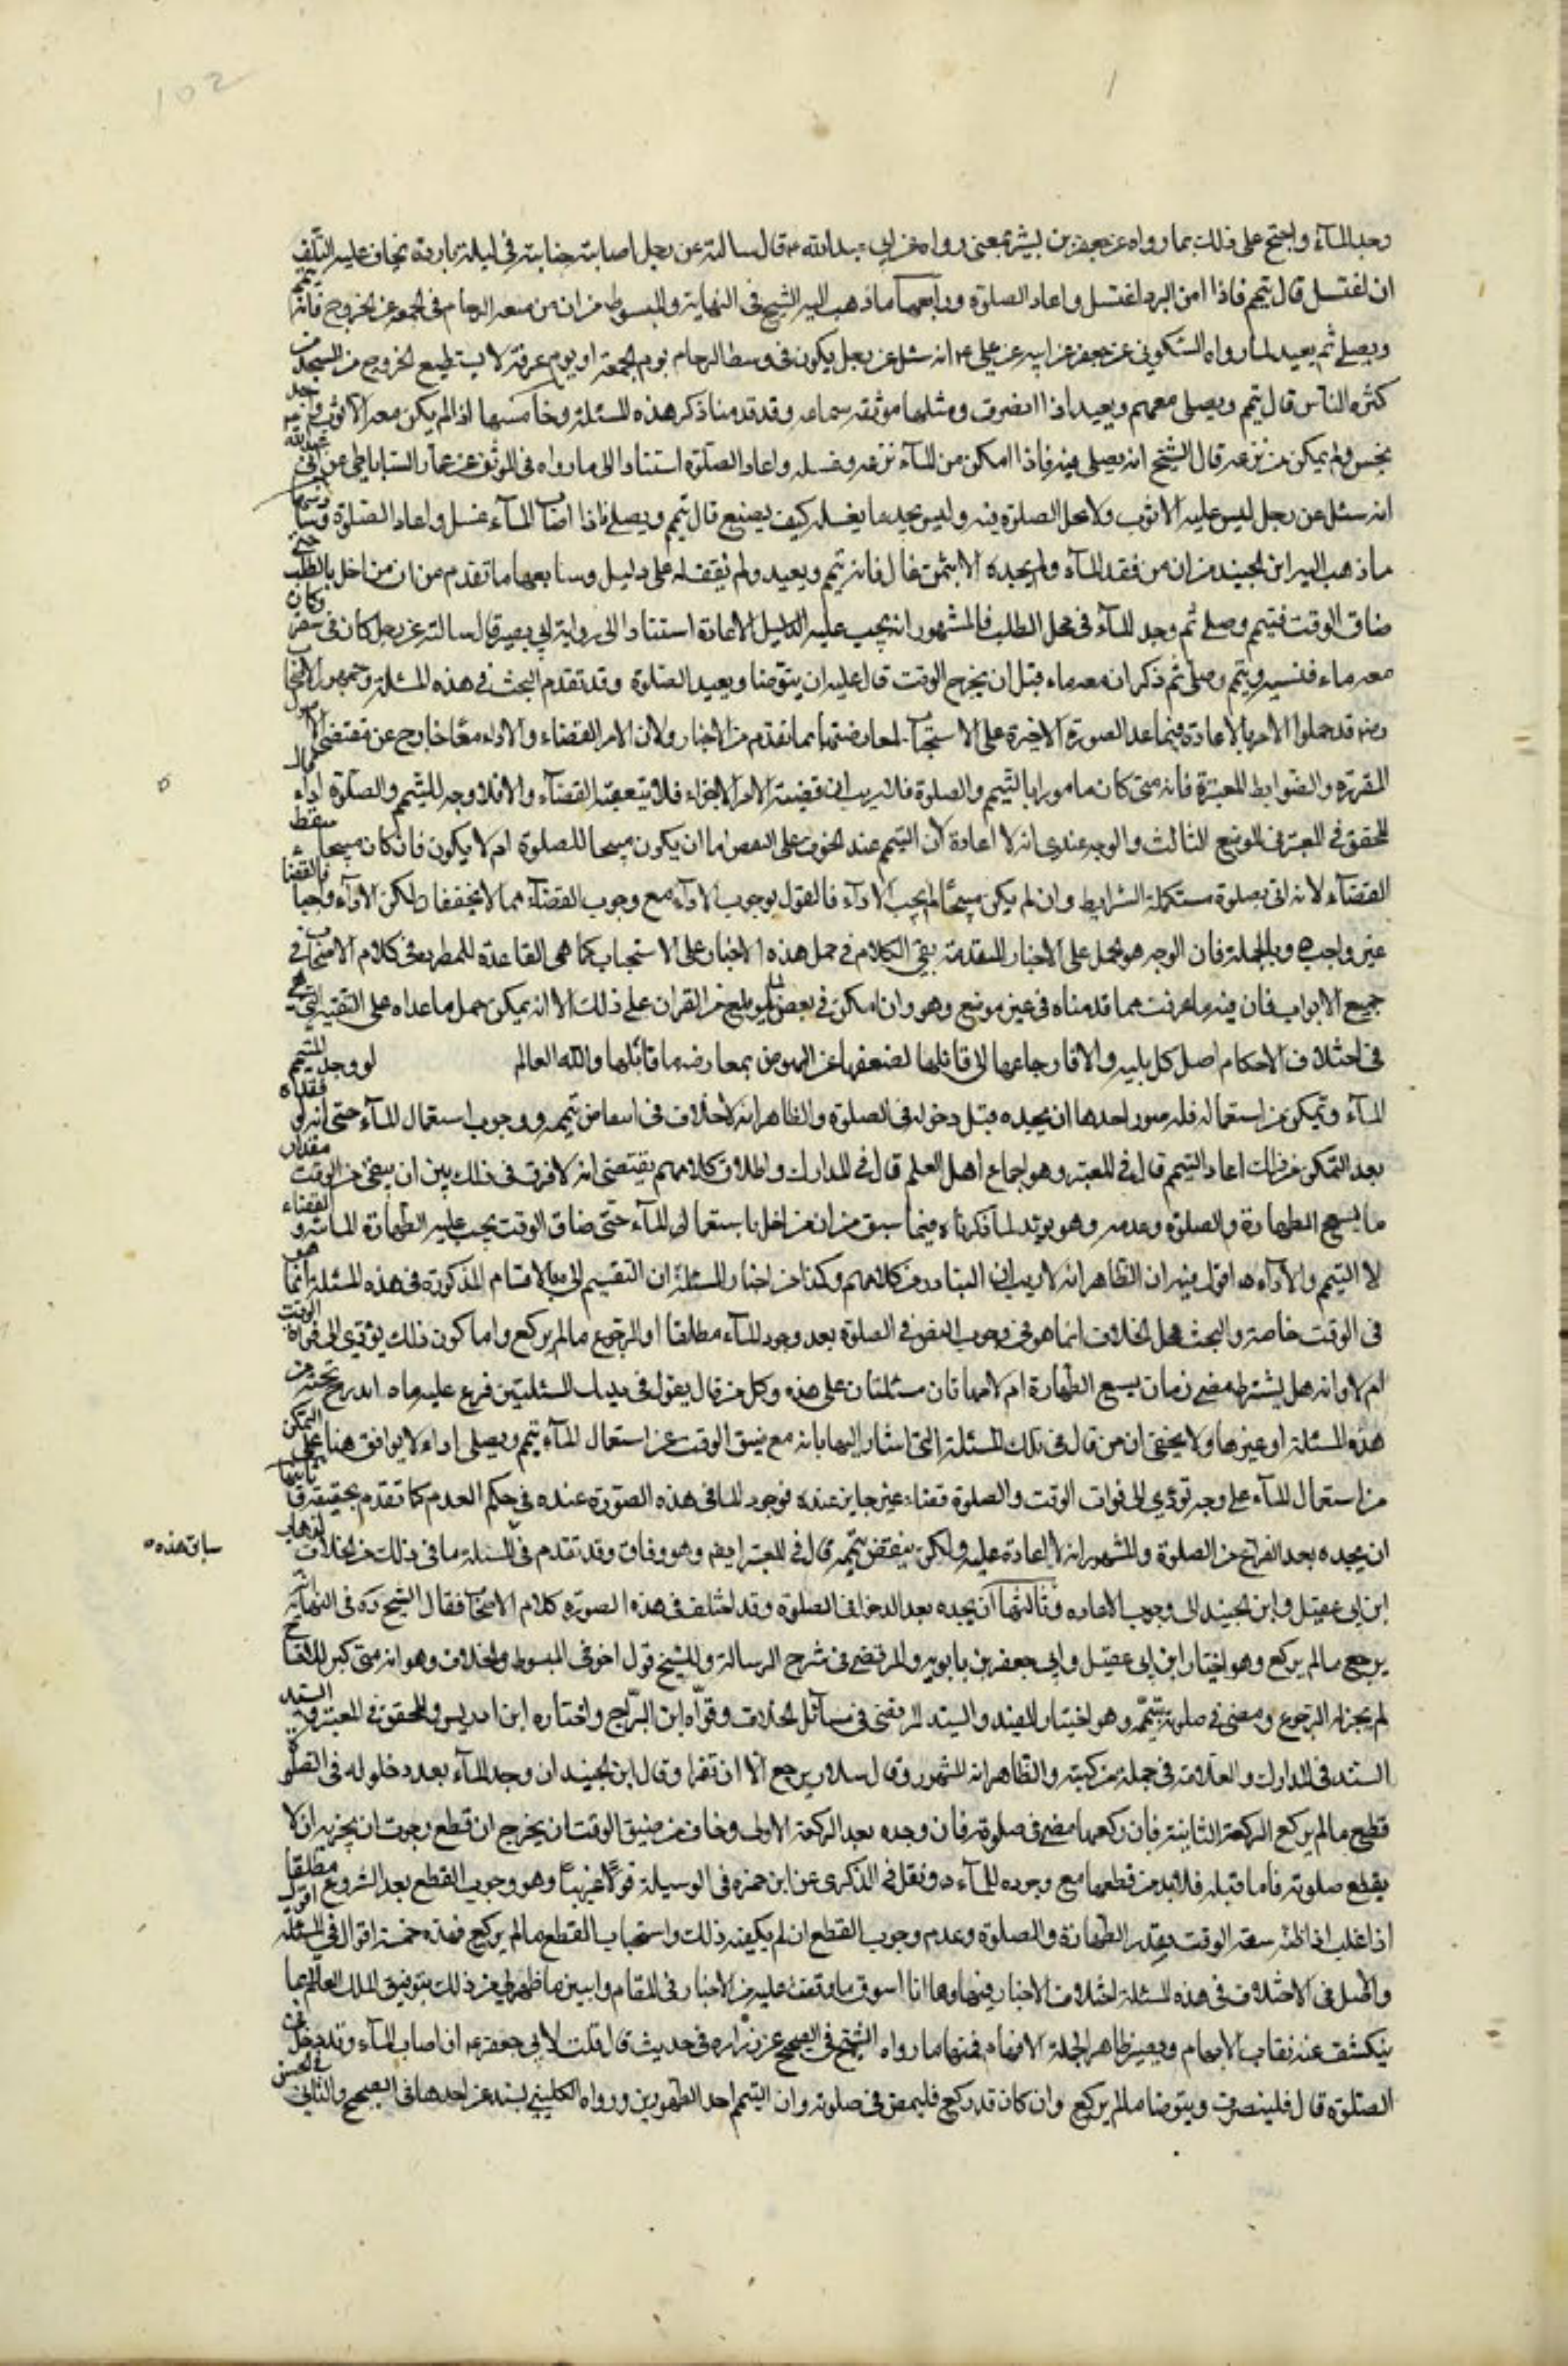 102
وجد الماء واحتج على ذلك بما رواه عن جعفر بن بشير عمن رواه عن ابي عبدالله ع قال سالته عن رجل اصابته جنابة في ليلة باردة يخاف على نفسه التلف
ان اغتسل قال يتيمم فاذا امن البرد اغتسل واعاد الصلوة ورابعها ما ذهب اليه الشيخ في النهاية والمبسوط من ان من منعه الزحام في الجمعة عن الخروج فانه يتيمم
ويصلي ثم يعيد لما رواه السكوني عن جعفر عن ابيه عن علي ع انه سئل عن رجل يكون في وسط الزحام يوم الجمعة او يوم عرفة لا يستطيع الخروج من المسجد من
كثرة الناس قال يتيمم ويصلي معهم ويعيد اذا انصرف ومثلها موثقة سماعه وقد قدمنا ذكر هذه المسئلة وخامسها اذا لم يكن معه الا ثوب
نجس ولم يمكن من نزعه قال الشيخ انه يصلي فيه فاذا امكن من الماء نزعه وغسله واعاد الصلوة استنادا الى ما رواه في الموثق عن عمار الساباطي عن ابي عبدالله
انه سئل عن رجل ليس عليه الا ثوب ولا تحل الصلوة فيه وليس يجد ما يغسله كيف يصنع قال يتيمم ويصلي فاذا اصاب الماء غسل واعاد الصلوة وسادسها
ما ذهب اليه ابن الجنيد من ان من فقد الماء ولم يجده الا بثمن غال فانه يتيمم ويعيد ولم نقف له على دليل وسابعها ما تقدم من ان من اخل بالطلب حتى
ضاق الوقت فتيمم وصلى ثم وجد الماء في محل الطلب فالمشهور انه يجب عليه الاعادة استنادا الى رواية ابي بصير قال سالته عن رجل كان في سفر وكان
معه ماء فنسيه وتيمم وصلى ثم ذكر ان معه ماء قبل ان يخرج الوقت قال عليه ان يتوضا ويعيد الصلوة وقد تقدم البحث في هذه المسئلة وجمهور الاصحاب
رض قد حملوا الامر بالاعادة فيما عدا الصورة الاخيرة على الاستحباب لمعارضتها بما تقدم من الاخبار ولان الامر بالقضاء والاداء معا خارج عن مقتضى الاصول
المقررة والضوابط المعتبرة فانه متى كان مامورا بالتيمم والصلوة فلا ريب ان قضية الامر الاجزاء فلا يتعقبه القضاء والا فلا وجه للتيمم والصلوة اداء قال
المحقق في المعتبر في الموضع الثالث والوجه عندي انه لا اعادة لان التيمم عند الخوف على النفس اما ان يكون مبيحا للصلوة ام لا يكون فان كان مبيحا سقط
القضاء لانه اتى بصلوة مستكملة الشرايط وان لم يكن مبيحا لم يجب الاداء فالقول بوجوب الاداء مع وجوب القضاء مما لا يجتمعان لكن الاداء واجبا فالقضاء
غير واجب ه وبالجملة فان الوجه هو الحمل على الاخبار المتقدمة بقي الكلام في حمل هذه الاخبار على الاستحباب كما هي القاعدة المطردة في كلام الاصحاب في
جميع الابواب فان فيه ما عرفت مما قدمناه في غير موضع وهو وان امكن في بعض المواضع من القران على ذلك الا انه يمكن حمل ما عداه على التقية التي هي
في اختلاف الاحكام اصل كل بلية والا فارجاعها الى قائلها لضعفها عن النهوض بمعارضة ما قابلها والله العالم لو وجد المتيمم
الماء وتمكن من استعماله فله صور احدها ان يجده قبل دخوله في الصلوة والظاهر انه لا خلاف في انتقاض تيممه ووجوب استعمال الماء حتى انه لو فقداه
بعد التمكن من ذلك اعاد التيمم قال في المعتبر وهو اجماع اهل العلم قال في المدارك واطلاق كلامهم يقتضي انه لا فرق في ذلك بين ان يبقى من الوقت مقدار
ما يسع الطهارة والصلوة وعدمه وهو يؤيد لما ذكرناه فيما سبق من ان من اخل باستعمال الماء حتى ضاق الوقت يجب عليه الطهارة المائية والقضاء
لا التيمم والاداء ه اقول فيه ان الظاهر انه لا ريب ان المتبادر من كلامهم وكذا من اخبار المسئلة ان التقسيم الى الاقسام المذكورة في هذه المسئلة انما هو
في الوقت خاصة والبحث محل الخلاف انما هو في وجوب المضي في الصلوة بعد وجود الماء مطلقا او الرجوع ما لم يركع واما كون ذلك يؤدي الى فوات الوقت
ام لا وانه هل يشترط مضي زمان يسع الطهارة ام لا فهاتان مسئلتان على حده وكل من قال بقول في تلك المسئلتين فرع عليه ما اندرج تحته من
هذه المسئلة او غيرها ولا يخفى ان من قال في تلك المسئلة التي اشار اليها بانه مع ضيق الوقت عن استعمال الماء يتيمم ويصلي اداء لا يوافق هنا على التمكن
من استعمال الماء على وجه تؤدي الى فوات الوقت والصلوة قضاء غير جايز عنده فوجود الماء في هذه الصورة عنده في حكم العدم كما تقدم تحقيقه وثانيها
ان يجده بعد الفراغ من الصلوة والمشهور انه لا اعادة عليه ولكن ينتقض تيممه قال في المعتبر ايضا وهو وفاق وقد تقدم في المسئلة ما في ذلك من الخلاف لذهاب
سابق هذه ه
ابن ابي عقيل وابن الجنيد الى وجوب الاعاده وثالثها ان يجده بعد الدخول في الصلوة وقد اختلف في هذه الصورة كلام الاصحاب فقال الشيخ ره في النهاية
يرجع ما لم يركع وهو اختيار ابن ابي عقيل وابي جعفر بن بابويه والمرتضى في شرح الرسالة وللشيخ قول اخر في المبسوط والخلاف وهو انه متى كبر للافتتاح
لم يجز له الرجوع ومضى في صلوته بتيممه وهو اختيار المفيد والسيد المرتضى في مسائل الخلاف وقواه ابن البراج واختاره ابن ادريس والمحقق في المعتبر والسيد
السند في المدارك والعلامة في جملة من كتبه والظاهر انه المشهور وقال سلار يرجع الا ان تقرا وقال ابن الجنيد ان وجد الماء بعد دخوله في الصلوة
قطع ما لم يركع الركعة الثانية فان ركعها مضى في صلوته فان وجده بعد الركعة الاولى وخاف من ضيق الوقت ان يخرج ان قطع رجوت ان يجزيه ان لا
يقطع صلوته فاما قبله فلا بد من قطعها مع وجوده للماء ه ونقل في الذكرى عن ابن حمزه في الوسيلة قولا غريبا وهو وجوب القطع بعد الشروع مطلقا
اذا غلب على ظنه سعة الوقت بقدر الطهارة والصلوة وعدم وجوب القطع ان لم يمكنه ذلك واستحباب القطع ما لم يركع فهذه خمسة اقوال في المسئلة اقول
والاصل في الاختلاف في هذه المسئلة اختلاف الاخبار فيها وها انا اسوق ما وقفت عليه من الاخبار في المقام وابين ما ظهر لي من ذلك بتوفيق الملك العلام بما
ينكشف عنه نقاب الابهام ويصير ظاهرا لجملة الافهام فمنها ما رواه الشيخ في الصحيح عن زراره في حديث قال قلت لابي جعفر ع ان اصاب الماء وقد دخل في
الصلوة قال فلينصرف ويتوضا ما لم يركع وان كان قد ركع فليمض في صلوته وان التيمم احد الطهورين ورواه الكليني بسندين احدهما في الصحيح والثاني في الحسن